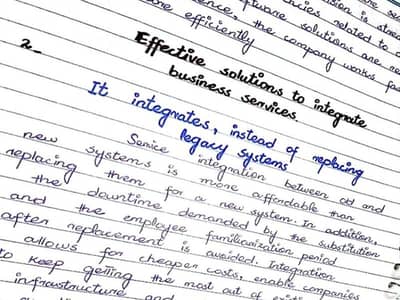 ision is stream
encies related to
software solutions are ne
ence, the company works fas
re efficiently
2-
Effective solutions to integrate
business services.
It integrates, instead of replacing
legacy systems
Service integration between old and
new systems is more affordable than
replacing them for a new system. In addition,
the downtime demanded by the substitution
and the employee familiarization period
after replacement is avoided. Integration
allows for cheaper costs, enable companies
to keep getting the most out of
infrastructure and